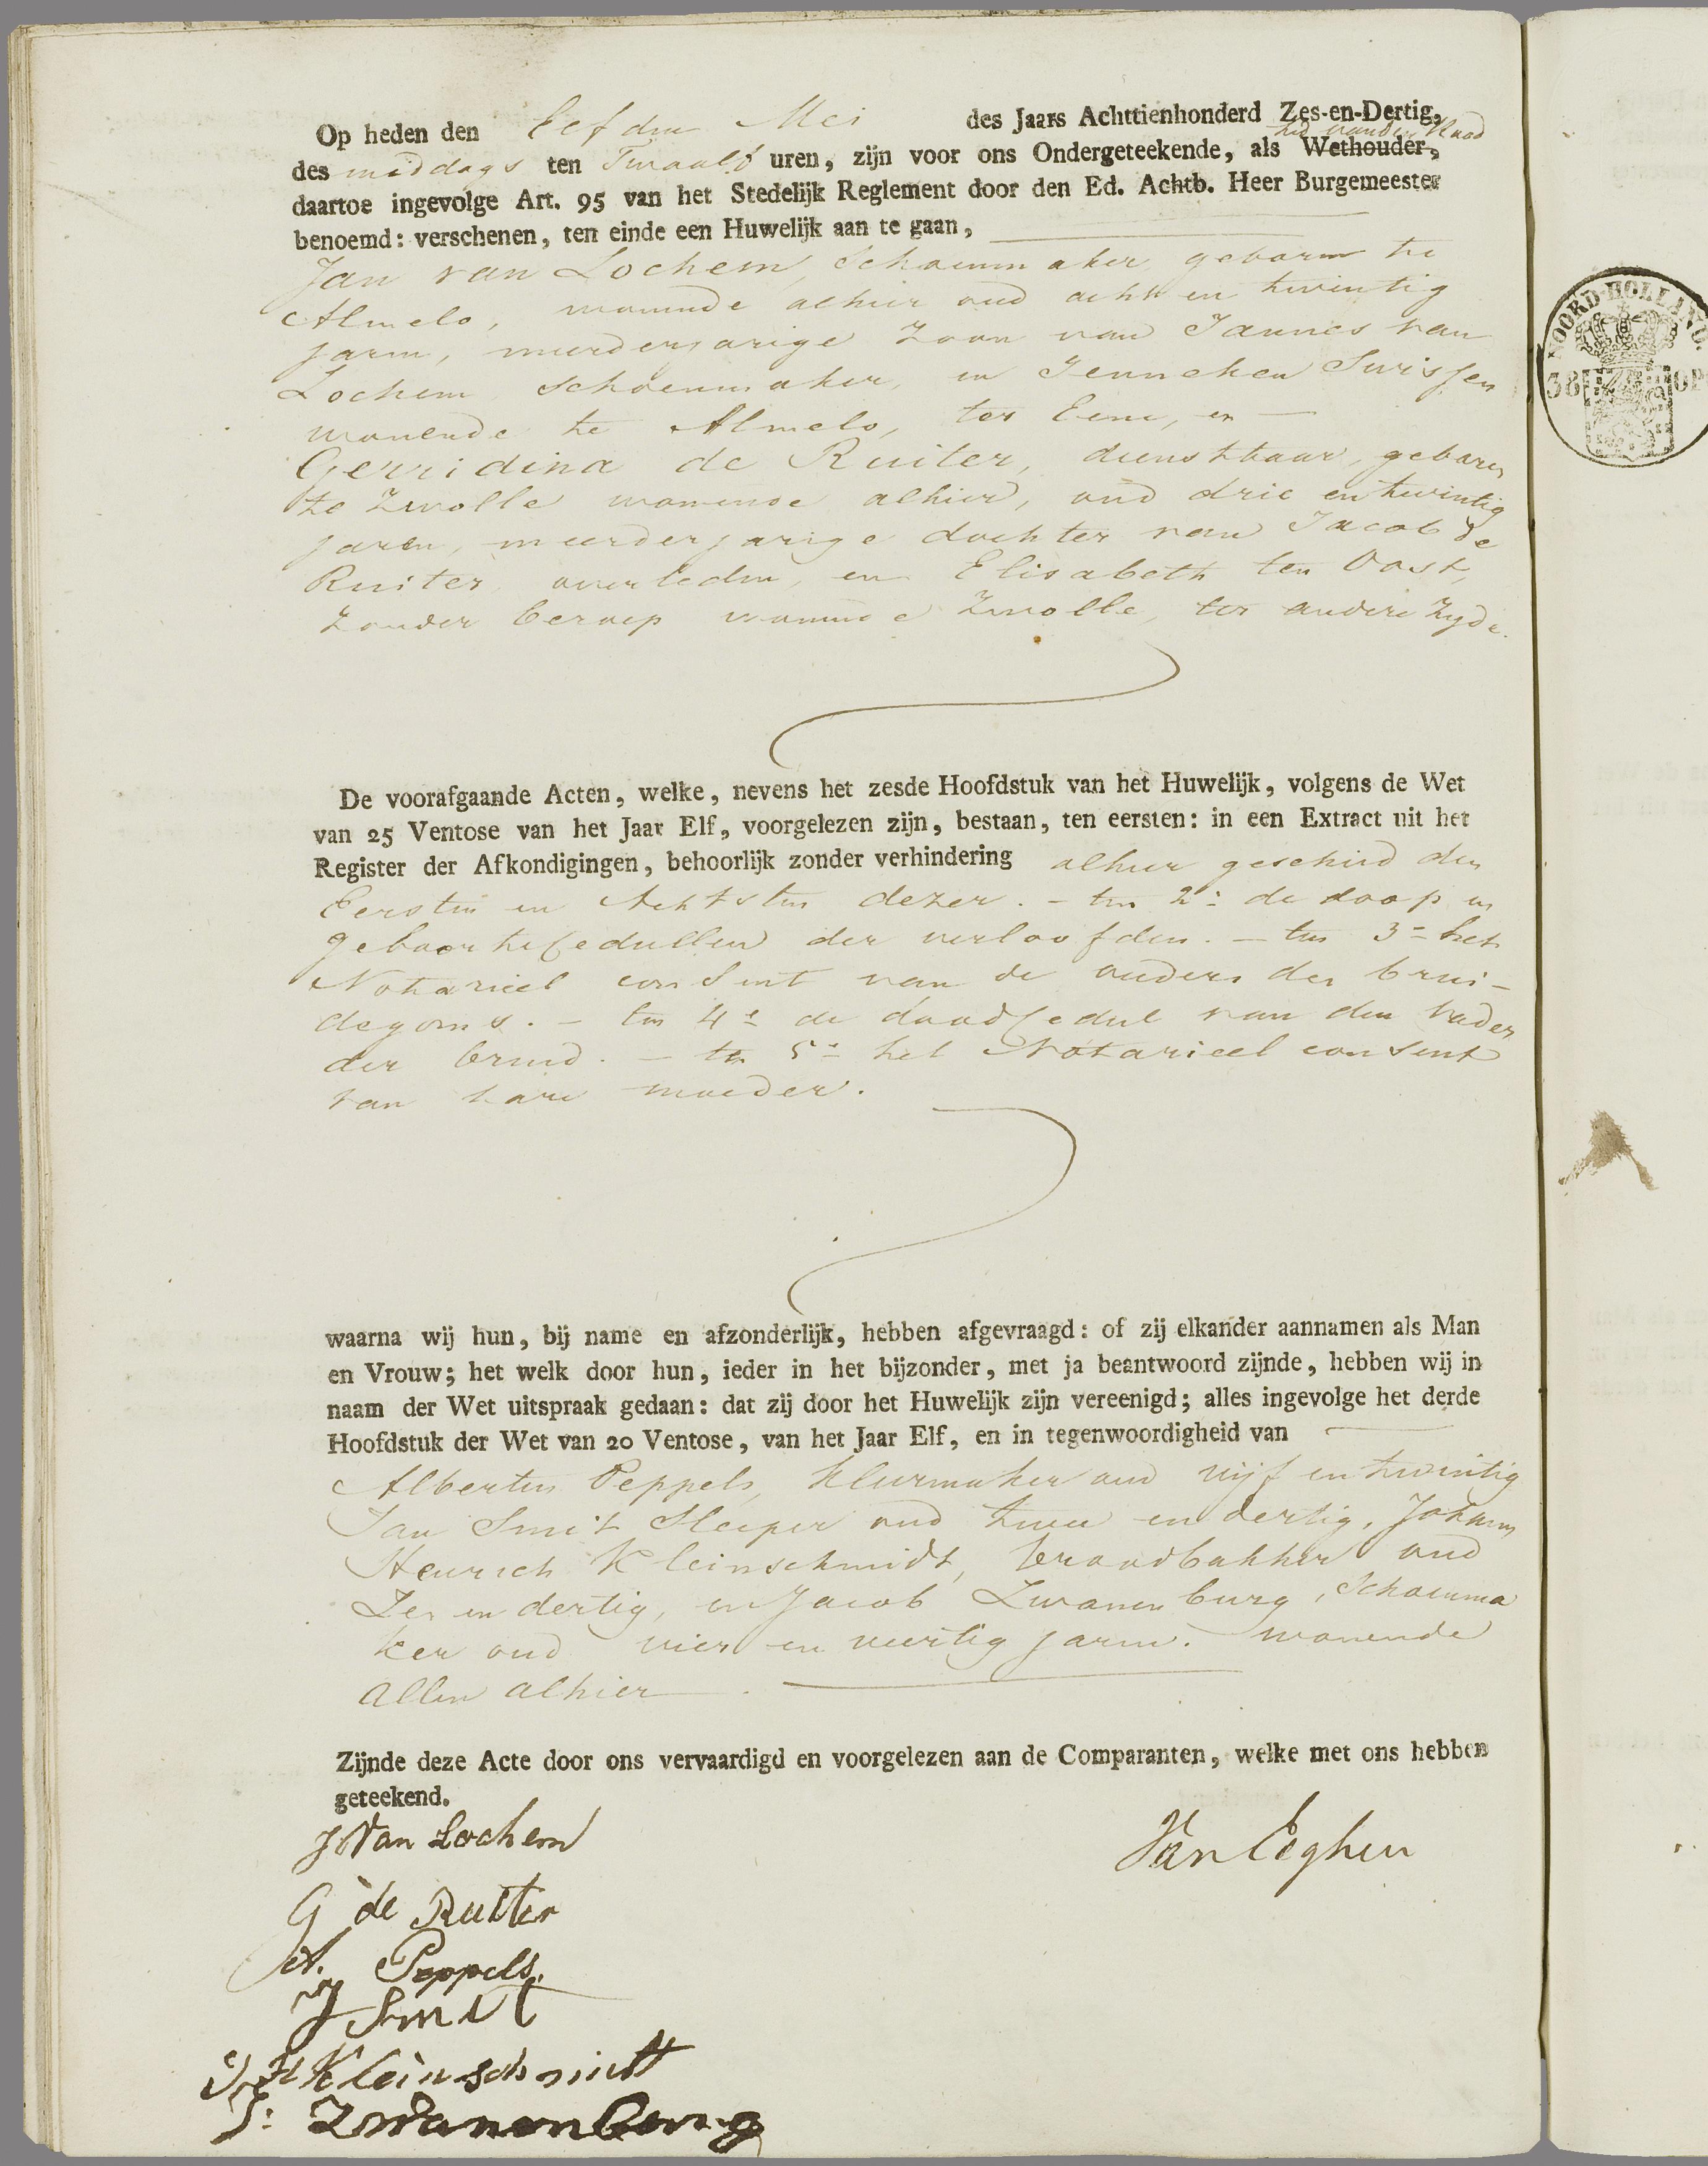 Op heden den Elfden Mei des Jaars Achttienhonderd Zes-en-Dertig,
lid van den Raad
des middags ten Twaalf uren, zijn voor ons Ondergeteekende, als Wethouder,
daartoe ingevolge Art. 95 van het Stedelijk Reglement door den Ed. Achtb. Heer Burgemeester
benoemd: verschenen, ten einde een Huwelijk aan te gaan,
Jan van Lochem, Schoenmaker, geboren te
Almelo, wonende alhier oud acht en twintig
jaren, meerderjarige Zoon van Jannes van
Lochem Schoenmaker, en Jenneken Swissen
wonende te Almelo, ter Eene, en
Gerridina de Ruiter, dienstbaar, geboren
te Zwolle wonende alhier, oud drie en twintig
jaren, meerderjarige dochter van Jacob de
Ruiter, overleden, en Elisabeth ten Oost,
Zonder beroep wonende Zwolle, ter andere Zyde.
De voorafgaande Acten, welke, nevens het zesde Hoofdstuk van het Huwelijk, volgens de Wet
van 25 Ventose van het Jaar Elf, voorgelezen zijn, bestaan, ten eersten: in een Extract uit het
Register der Afkondigingen, behoorlijk zonder verhindering alhier geschied den
Eersten en Achtsten dezer. - ten 2e de doop en
geboorte Cedullen der verloofden. - ten 3e het
Notarieel consent van de ouders des brui-
degoms. - ten 4e de dood Cedul van den Vader
der bruid. - ten 5e het Notarieel consent
van hare moeder.
waarna wij hun, bij name en afzonderlijk, hebben afgevraagd: of zij elkander aannamen als Man
en Vrouw; het welk door hun, ieder in het bijzonder, met ja beantwoord zijnde, hebben wij in
naam der Wet uitspraak gedaan: dat zij door het Huwelijk zijn vereenigd; alles ingevolge het derde
Hoofdstuk der Wet van 20 Ventose, van het Jaar Elf, en in tegenwoordigheid van
Albertus Peppels, Kleermaker oud vijf en twintig
Jan Smit Sleeper oud twee en dertig, Johann
Heinrich Kleinschmidt, broodbakker oud
Zes en dertig, en Jacob Zwanenburg, Schoenma
ker oud vier en veertig jaren. wonende
allen alhier
Zijnde deze Acte door ons vervaardigd en voorgelezen aan de Comparanten, welke met ons hebben
geteekend.
J Van Lochem
Van Eeghen
G de Ruiter
A. Peppels.
J Smit
J H Kleinschmidt
J: Zwanenburg
NOORD-HOLLAND.
38